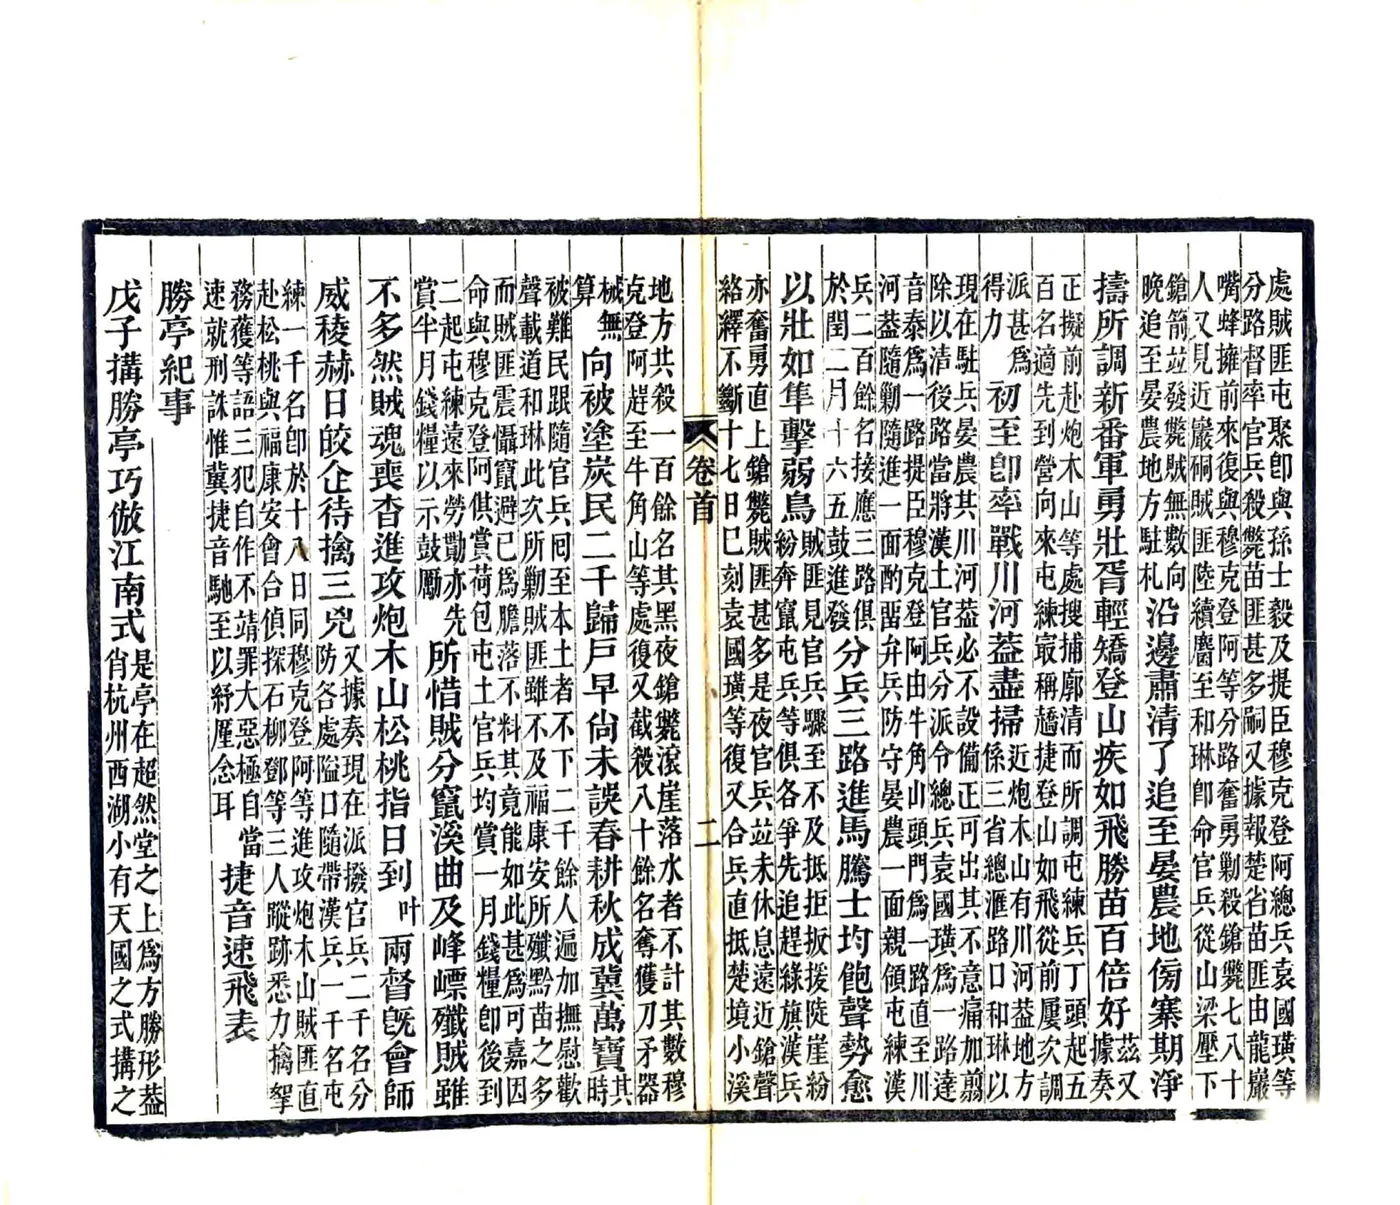 處賊匪屯聚卽與孫士毅及提臣穆克登阿總兵袁國璜等
分路督率官兵殺斃苗匪甚多嗣又據報楚省苗匪由龍巖
嘴蜂擁前來復與穆克登阿等分路奮勇勦殺鎗斃七八十
人又見近巖硐賊匪陸續麕至和琳卽命官兵從山梁壓下
鎗箭竝發斃賊無數向
晚追至晏農地方駐札
沿邊肅清了追至晏農地傍寨期淨
擣所調新番軍勇壯胥輕矯登山疾如飛勝苗百倍好
茲又
據奏
正擬前赴炮木山等處搜捕廓清而所調屯練兵丁頭起五
百名適先到營向來屯練㝡稱趫捷登山如飛從前屢次調
派甚爲
得力
初至卽率戰川河蓋盡掃
近炮木山有川河葢地方
係三省總滙路口和琳以
現在駐兵晏農其川河葢必不設備正可出其不意痛加翦
除以清後路當將漢土官兵分派令總兵袁國璜爲一路達
音泰爲一路提臣穆克登阿由牛角山頭門爲一路直至川
河葢隨勦隨進一面酌畱弁兵防守晏農一面親領屯練漢
兵二百餘名接應三路俱
於閏二月十六五鼓進發
分兵三路進馬騰士均飽聲勢愈
以壯如隼擊弱鳥
賊匪見官兵驟至不及抵拒扳援陡崖紛
紛奔竄屯兵等俱各爭先追趕綠旗漢兵
亦奮勇直上鎗斃賊匪甚多是夜官兵竝未休息遠近鎗聲
絡繹不斷十七日巳刻袁國璜等復又合兵直抵楚境小溪
卷首
二
地方共殺一百餘名其黑夜鎗斃滾崖落水者不計其數穆
克登阿趕至牛角山等處復又截殺八十餘名奪獲刀矛器
械無
算
向被塗炭民二千歸戶早尙未誤春耕秋成冀萬寶
其
時
被難民跟隨官兵囘至本土者不下二千餘人遍加撫慰歡
聲載道和琳此次所勦賊匪雖不及福康安所殲黔苗之多
而賊匪震懾竄避已爲膽落不料其竟能如此甚爲可嘉因
命與穆克登阿俱賞荷包屯土官兵均賞一月錢糧卽後到
二起屯練遠來勞勩亦先
賞半月錢糧以示鼓勵
所惜賊分竄溪曲及峰嶂殲賊雖
不多然賊魂喪杳進攻炮木山松桃指日到
叶
兩督旣會師
威稜赫日皎企待擒三兇
又據奏現在派撥官兵二千名分
防各處隘口隨帶漢兵一千名屯
練一千名卽於十八日同穆克登阿等進攻炮木山賊匪直
赴松桃與福康安會合偵探石柳鄧等三人蹤跡悉力擒拏
務獲等語三犯自作不靖罪大惡極自當
速就刑誅惟冀捷音馳至以紓厪念耳
捷音速飛表
勝亭紀事
戊子搆勝亭巧倣江南式
是亭在超然堂之上爲方勝形葢
肖杭州西湖小有天國之式搆之